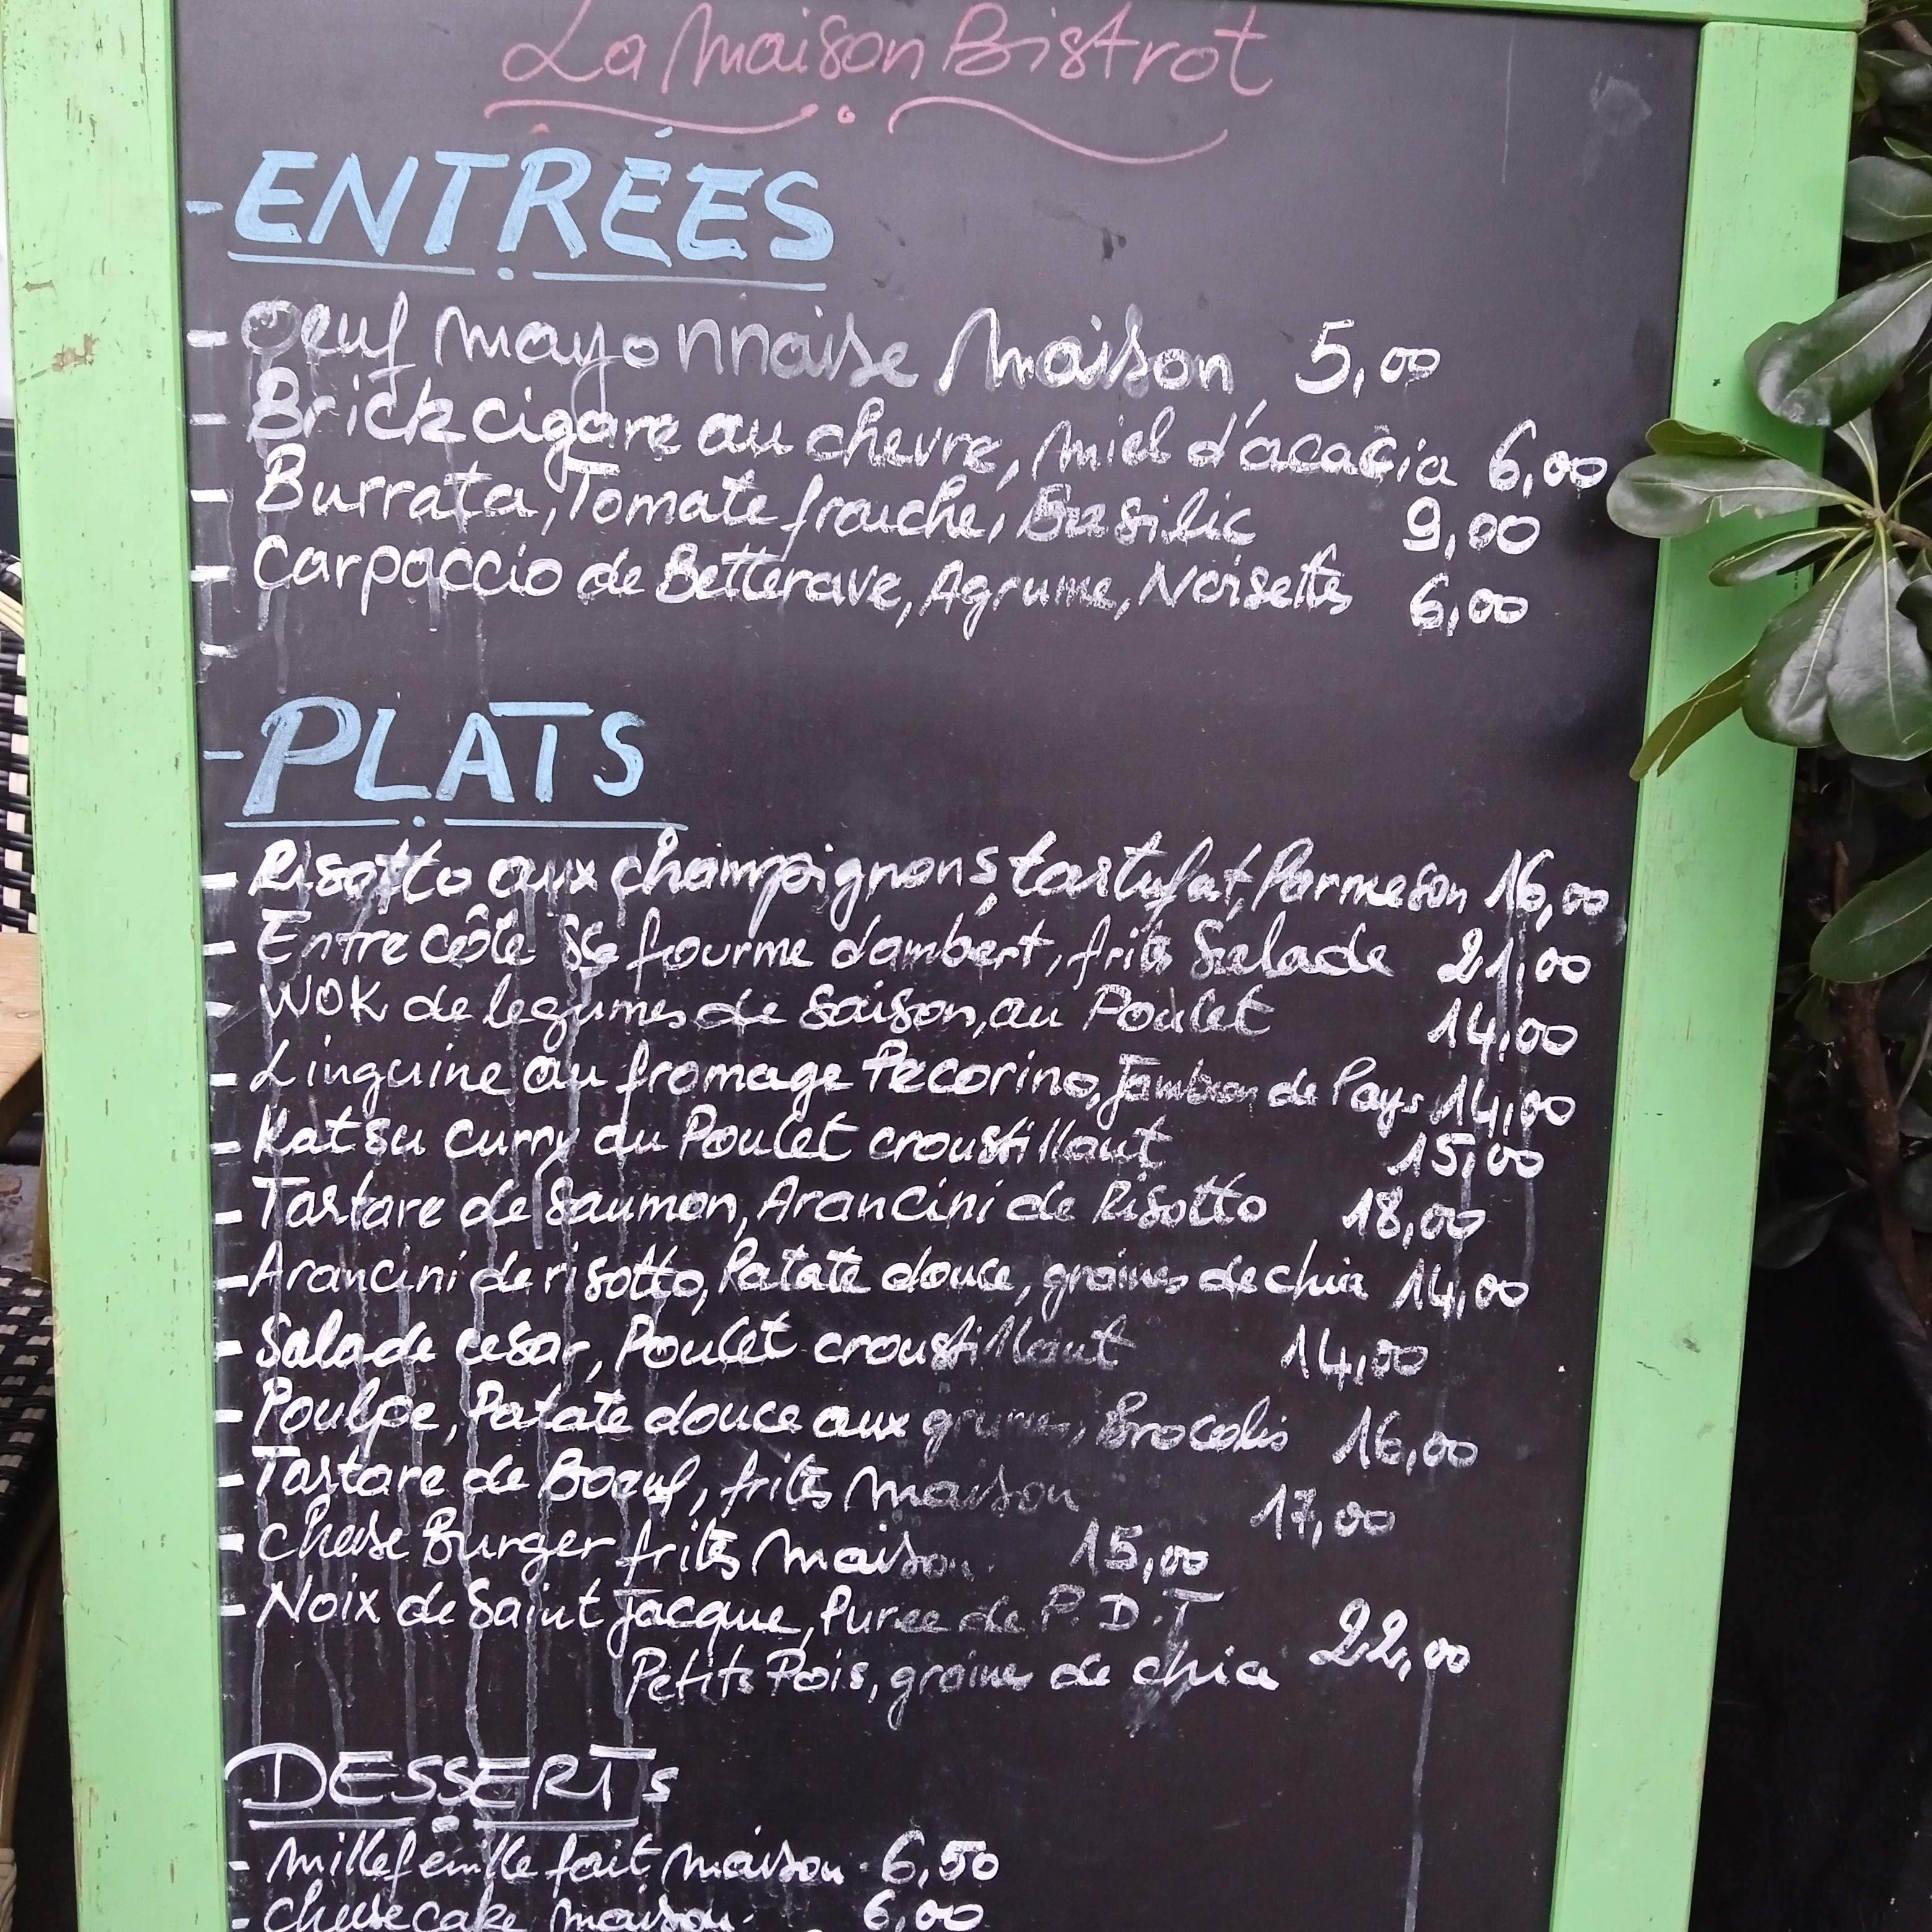 La Maison Bistrot
- ENTRÉES
- Oeuf mayonnaise Maison 5,00
- Brick cigare au chevre, Miel d'acacia 6,00
- Burrata, Tomate fraiche, Basilic 9,00
- Carpaccio de Betterave, Agrume, Noisettes 6,00
-
- PLATS
- Risotto aux champignons, tartufat, Parmeson 16,00
- Entrecôte SG fourme d'ambert, frites Salade 21,00
- WOK de legumes de Saison, au Poulet 14,00
- Linguine au fromage Pecorino, Jambon de Pays 14,00
- Katsu curry au Poulet croustillant 15,00
- Tartare de Saumon, Arancini de Risotto 18,00
- Arancini de risotto, Patate douce, graines de chia 14,00
- Salade cesar, Poulet croustillant 14,00
- Poulpe, Patate douce aux graines, Brocolis 16,00
- Tartare de Boeuf, frites Maison 17,00
- Cheese Burger frites Maison 15,00
- Noix de Saint Jacque, Puree de P.D.T
Petits Pois, graine de chia 22,00
DESSERTS
- Millefeuille fait Maison 6,50
- Cheese cake maison 6,00